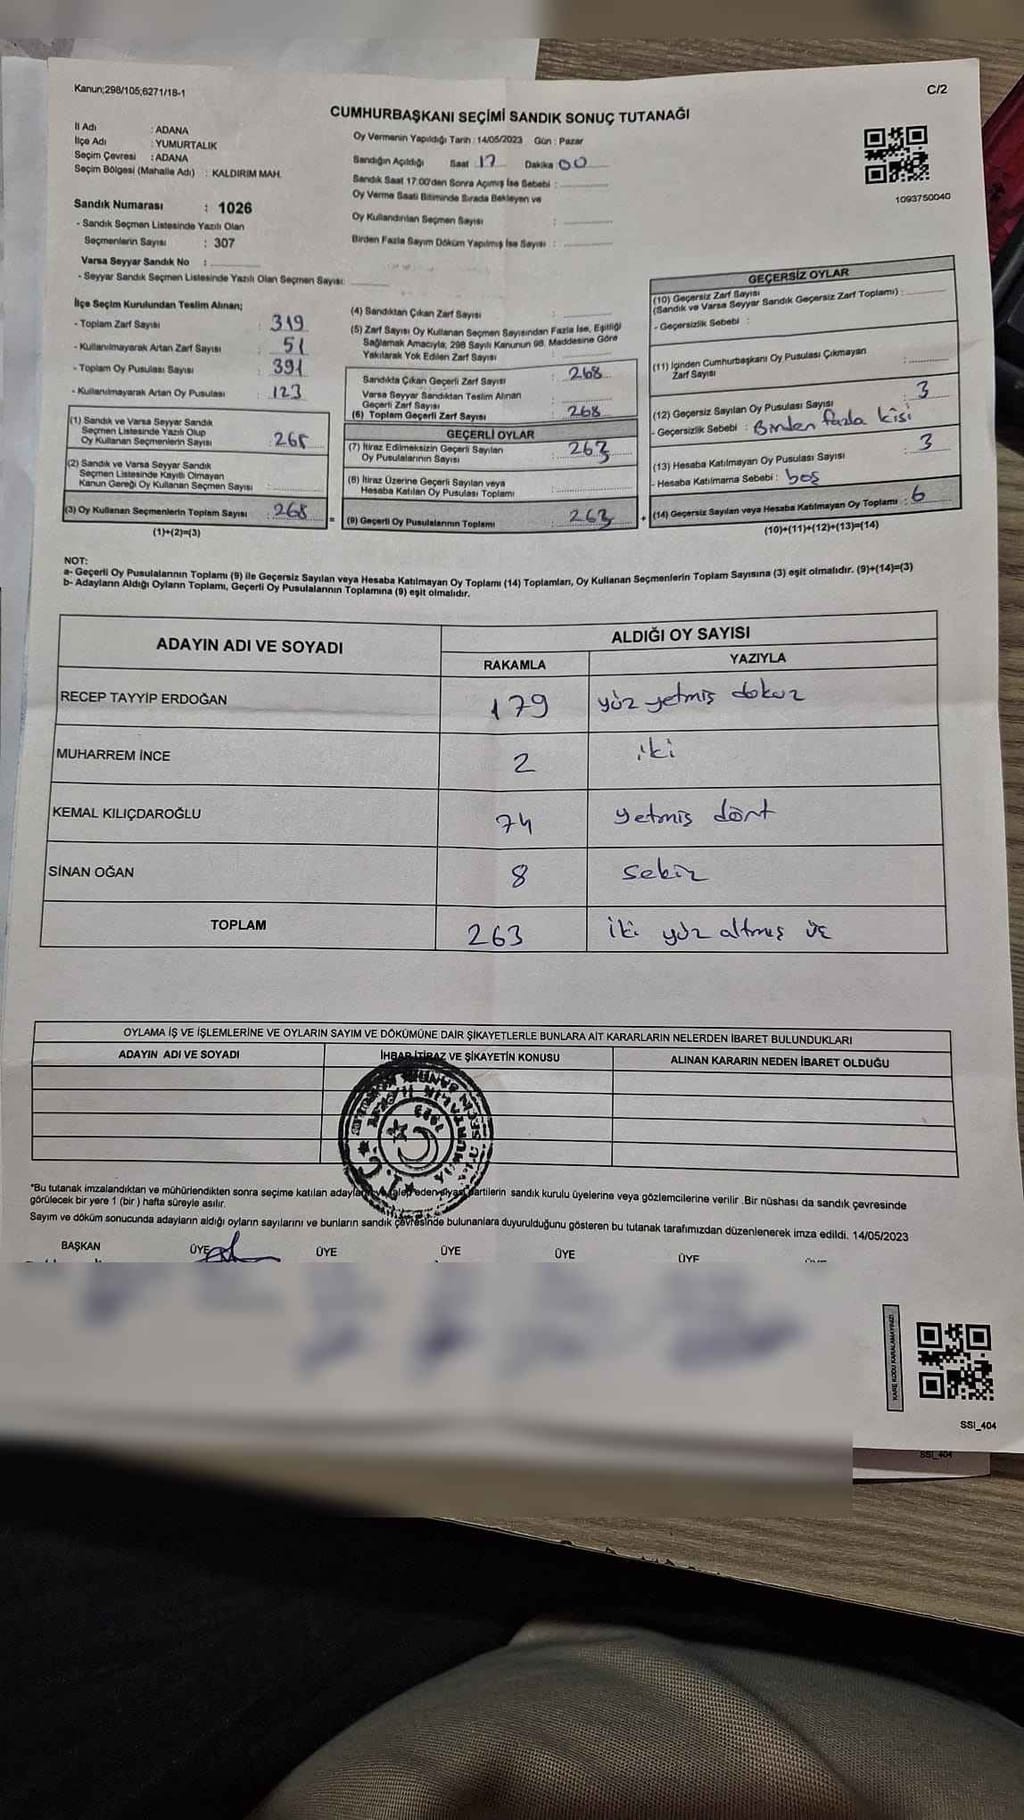 Kanun;298/105;6271/18-1
C/2
CUMHURBAŞKANI SEÇİMİ SANDIK SONUÇ TUTANAĞI
İl Adı : ADANA
İlçe Adı : YUMURTALIK
Seçim Çevresi : ADANA
Seçim Bölgesi (Mahalle Adı) : KALDIRIM MAH.
Sandık Numarası : 1026
- Sandık Seçmen Listesinde Yazılı Olan
Seçmenlerin Sayısı : 307
Varsa Seyyar Sandık No :
- Seyyar Sandık Seçmen Listesinde Yazılı Olan Seçmen Sayısı:
Oy Vermenin Yapıldığı Tarih : 14/05/2023 Gün : Pazar
Sandığın Açıldığı Saat 17 Dakika 00
Sandık Saat 17:00'den Sonra Açımış İse Sebebi :
Oy Verme Saati Bitiminde Sırada Bekleyen ve
Oy Kullandırılan Seçmen Sayısı :
Birden Fazla Sayım Döküm Yapılmış İse Sayısı :
1093750040
İlçe Seçim Kurulundan Teslim Alınan;
- Toplam Zarf Sayısı : 319
- Kullanılmayarak Artan Zarf Sayısı : 51
- Toplam Oy Pusulası Sayısı : 391
- Kullanılmayarak Artan Oy Pusulası : 123
(1) Sandık ve Varsa Seyyar Sandık
Seçmen Listesinde Yazılı Olup
Oy Kullanan Seçmenlerin Sayısı : 268
(2) Sandık ve Varsa Seyyar Sandık
Seçmen Listesinde Kayıtlı Olmayan
Kanun Gereği Oy Kullanan Seçmen Sayısı :
(3) Oy Kullanan Seçmenlerin Toplam Sayısı : 268
(1)+(2)=(3)
(4) Sandıktan Çıkan Zarf Sayısı :
(5) Zarf Sayısı Oy Kullanan Seçmen Sayısından Fazla İse, Eşitliği
Sağlamak Amacıyla, 298 Sayılı Kanunun 98. Maddesine Göre
Yakılarak Yok Edilen Zarf Sayısı :
Sandıkta Çıkan Geçerli Zarf Sayısı : 268
Varsa Seyyar Sandıktan Teslim Alınan
Geçerli Zarf Sayısı :
(6) Toplam Geçerli Zarf Sayısı : 268
GEÇERLİ OYLAR
(7) İtiraz Edilmeksizin Geçerli Sayılan
Oy Pusulalarının Sayısı : 263
(8) İtiraz Üzerine Geçerli Sayılan veya
Hesaba Katılan Oy Pusulası Toplamı :
(9) Geçerli Oy Pusulalarının Toplamı : 263
GEÇERSİZ OYLAR
(10) Geçersiz Zarf Sayısı
(Sandık ve Varsa Seyyar Sandık Geçersiz Zarf Toplamı) :
- Geçersizlik Sebebi :
(11) İçinden Cumhurbaşkanı Oy Pusulası Çıkmayan
Zarf Sayısı :
(12) Geçersiz Sayılan Oy Pusulası Sayısı : 3
- Geçersizlik Sebebi : Birden fazla kişi
(13) Hesaba Katılmayan Oy Pusulası Sayısı : 3
- Hesaba Katılmama Sebebi : boş
(14) Geçersiz Sayılan veya Hesaba Katılmayan Oy Toplamı : 6
(10)+(11)+(12)+(13)=(14)
NOT:
a- Geçerli Oy Pusulalarının Toplamı (9) ile Geçersiz Sayılan veya Hesaba Katılmayan Oy Toplamı (14) Toplamları, Oy Kullanan Seçmenlerin Toplam Sayısına (3) eşit olmalıdır. (9)+(14)=(3)
b- Adayların Aldığı Oyların Toplamı, Geçerli Oy Pusulalarının Toplamına (9) eşit olmalıdır.
ADAYIN ADI VE SOYADI ALDIĞI OY SAYISI
RAKAMLA YAZIYLA
RECEP TAYYİP ERDOĞAN 179 yüz yetmiş dokuz
MUHARREM İNCE 2 iki
KEMAL KILIÇDAROĞLU 74 yetmiş dört
SİNAN OĞAN 8 sekiz
TOPLAM 263 iki yüz altmış üç
OYLAMA İŞ VE İŞLEMLERİNE VE OYLARIN SAYIM VE DÖKÜMÜNE DAİR ŞİKAYETLERLE BUNLARA AİT KARARLARIN NELERDEN İBARET BULUNDUKLARI
ADAYIN ADI VE SOYADI İHBAR İTİRAZ VE ŞİKAYETİN KONUSU ALINAN KARARIN NEDEN İBARET OLDUĞU
*Bu tutanak imzalandıktan ve mühürlendikten sonra seçime katılan adaylar talep eden siyasi partilerin sandık kurulu üyelerine veya gözlemcilerine verilir. Bir nüshası da sandık çevresinde
görülecek bir yere 1 (bir) hafta süreyle asılır.
Sayım ve döküm sonucunda adayların aldığı oyların sayılarını ve bunların sandık çevresinde bulunanlara duyurulduğunu gösteren bu tutanak tarafımızdan düzenlenerek imza edildi. 14/05/2023
BAŞKAN ÜYE ÜYE ÜYE ÜYE ÜYE
KARE KODU KARALAMAYINIZ!
SSI_404
SSI_404